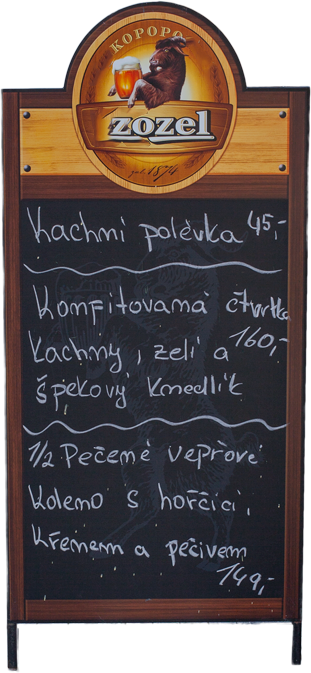 КОРОРО
zozel
1874
Kachní polévka 45,-
Konfitovaná čtvrtka
kachny, zelí a 160,-
špekový knedlík
1/2 Pečené vepřové
koleno s hořčicí,
křenem a pečivem
149,-